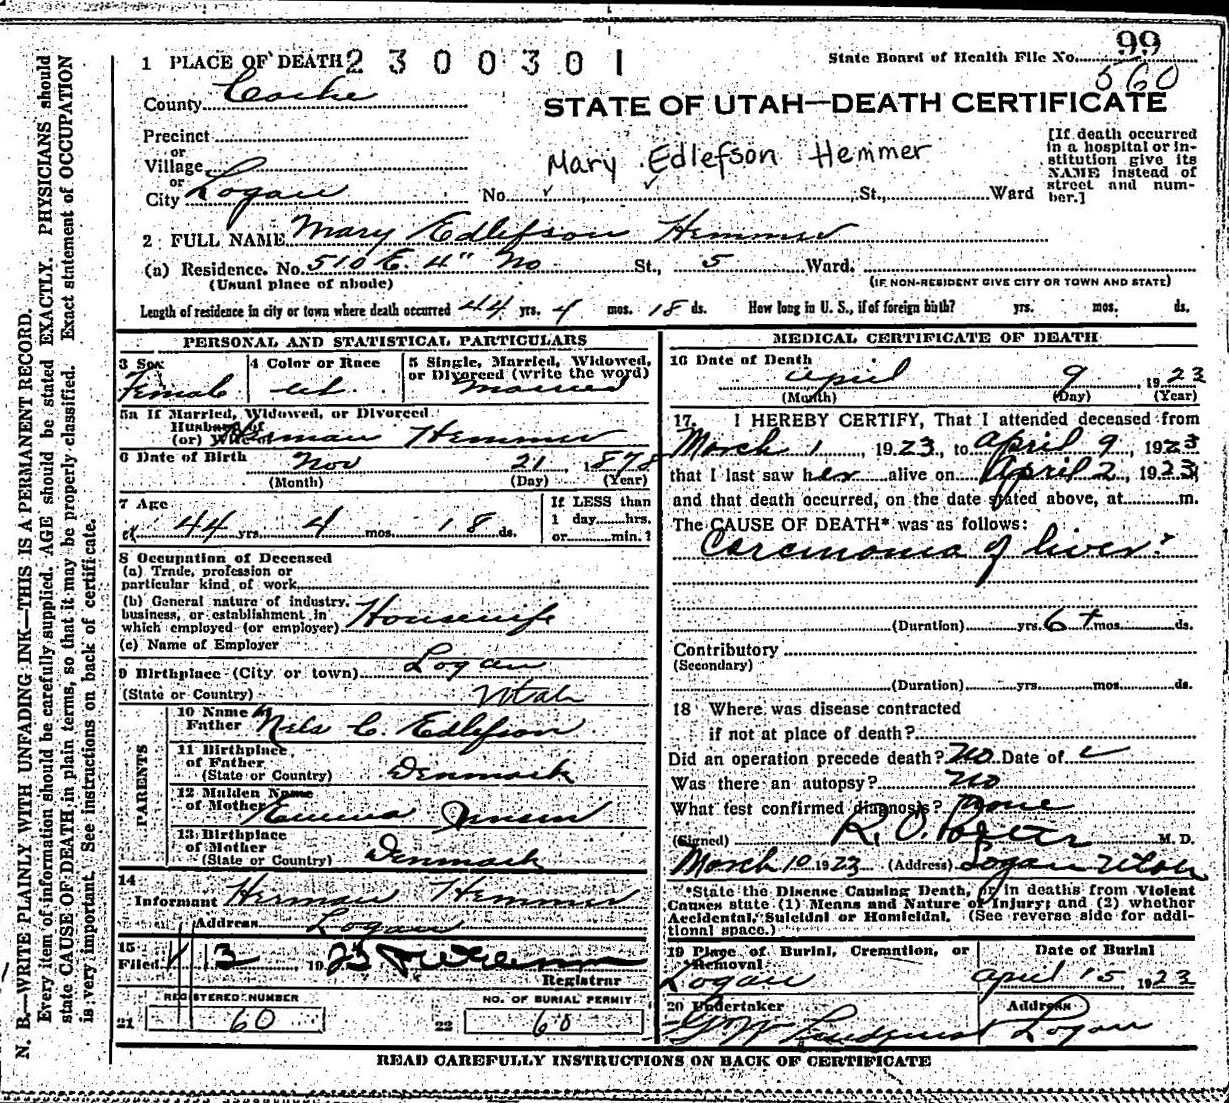 99
State Board of Health File No. 560
1 PLACE OF DEATH 2300301
County Cache
STATE OF UTAH—DEATH CERTIFICATE
Precinct
or
Village
or
City Logan
Mary Edlefson Hemmer
No. St., Ward
[If death occurred
in a hospital or in-
stitution give its
NAME instead of
street and num-
ber.]
2 FULL NAME Mary Edlefson Hemmer
(a) Residence. No. 510 E. 4" No St., 5 Ward.
(Usual place of abode) (IF NON-RESIDENT GIVE CITY OR TOWN AND STATE)
Length of residence in city or town where death occurred 44 yrs. 4 mos. 18 ds. How long in U. S., if of foreign birth? yrs. mos. ds.
PERSONAL AND STATISTICAL PARTICULARS
3 Sex 4 Color or Race 5 Single, Married, Widowed,
or Divorced (write the word)
Female married
5a If Married, Widowed, or Divorced
Husband of
(or) Wife of Herman Hemmer
6 Date of Birth Nov 21, 1878
(Month) (Day) (Year)
7 Age If LESS than
44 yrs. 4 mos. 18 ds. 1 day hrs.
or min.?
8 Occupation of Deceased
(a) Trade, profession or
particular kind of work
(b) General nature of industry,
business, or establishment in
which employed (or employer) Housewife
(c) Name of Employer
9 Birthplace (City or town) Logan
(State or Country) Utah
PARENTS
10 Name of
Father Nils C. Edlefson
11 Birthplace
of Father
(State or Country) Denmark
12 Maiden Name
of Mother Emma Jensen
13 Birthplace
of Mother
(State or Country) Denmark
14
Informant Herman Hemmer
Address Logan
15
Filed 13, 1923
Registrar
REGISTERED NUMBER NO. OF BURIAL PERMIT
21 60 22 60
MEDICAL CERTIFICATE OF DEATH
16 Date of Death
April 9, 1923
(Month) (Day) (Year)
17. I HEREBY CERTIFY, That I attended deceased from
March 1, 1923, to April 9, 1923
that I last saw her alive on April 2, 1923
and that death occurred, on the date stated above, at m.
The CAUSE OF DEATH* was as follows:
Carcinoma of liver
(Duration) yrs. 6+ mos. ds.
Contributory
(Secondary)
(Duration) yrs. mos. ds.
18 Where was disease contracted
if not at place of death?
Did an operation precede death? No Date of
Was there an autopsy? No
What test confirmed diagnosis? None
(Signed) R. O. Porter M. D.
March 10 1923 (Address) Logan Utah
*State the Disease Causing Death, or in deaths from Violent
Causes state (1) Means and Nature of Injury; and (2) whether
Accidental, Suicidal or Homicidal. (See reverse side for addi-
tional space.)
19 Place of Burial, Cremation, or Date of Burial
Removal
Logan April 15, 1923
20 Undertaker Address
Logan
READ CAREFULLY INSTRUCTIONS ON BACK OF CERTIFICATE
N. B.—WRITE PLAINLY WITH UNFADING INK—THIS IS A PERMANENT RECORD.
Every item of information should be carefully supplied. AGE should be stated EXACTLY. PHYSICIANS should
state CAUSE OF DEATH in plain terms, so that it may be properly classified. Exact statement of OCCUPATION
is very important. See instructions on back of certificate.